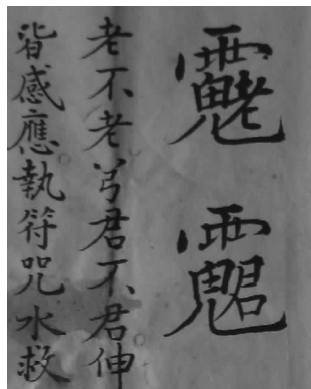 老不老兮君不君伸
皆感應執符咒水救